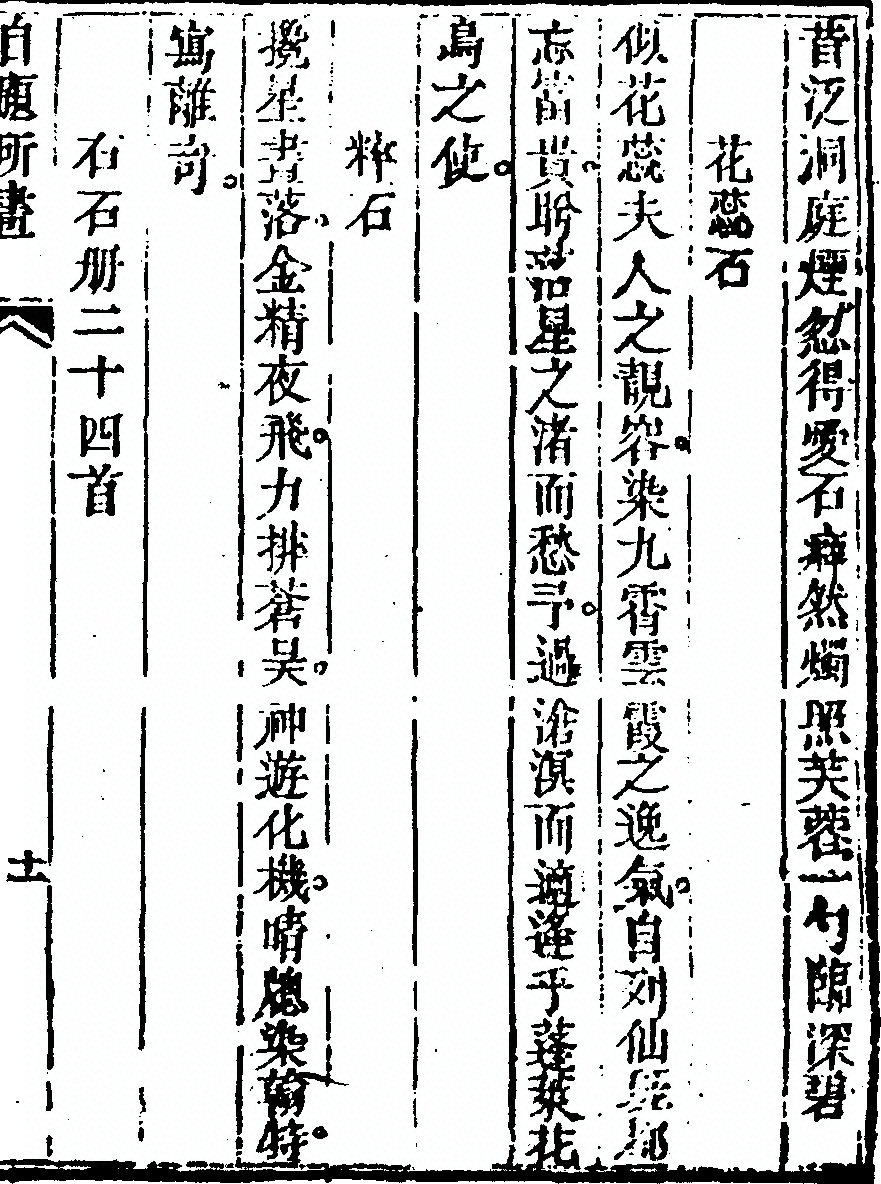 昔泛洞庭煙忽得愛石癖然燭照芙蓉一勺臨深碧
花蕊石
似花蕊夫人之靚容染九霄雲霞之逸氣自列仙
忘富貴盼落星之渚而愁予過滄溟而適遙乎蓬萊花
島之使
粹石
攙星晝落金精夜飛力排蒼昊神遊化機晴牕染翰特
寫離奇
石石册二十四首
自題所畫
十一